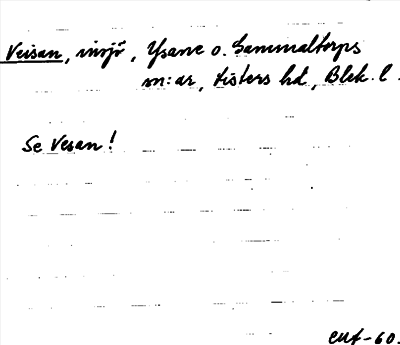 Veisan, insjö, Ysane o. Gammaltorps
sn:ar, Listers hd, Blek. l.
Se Vesan!
CUf-60.